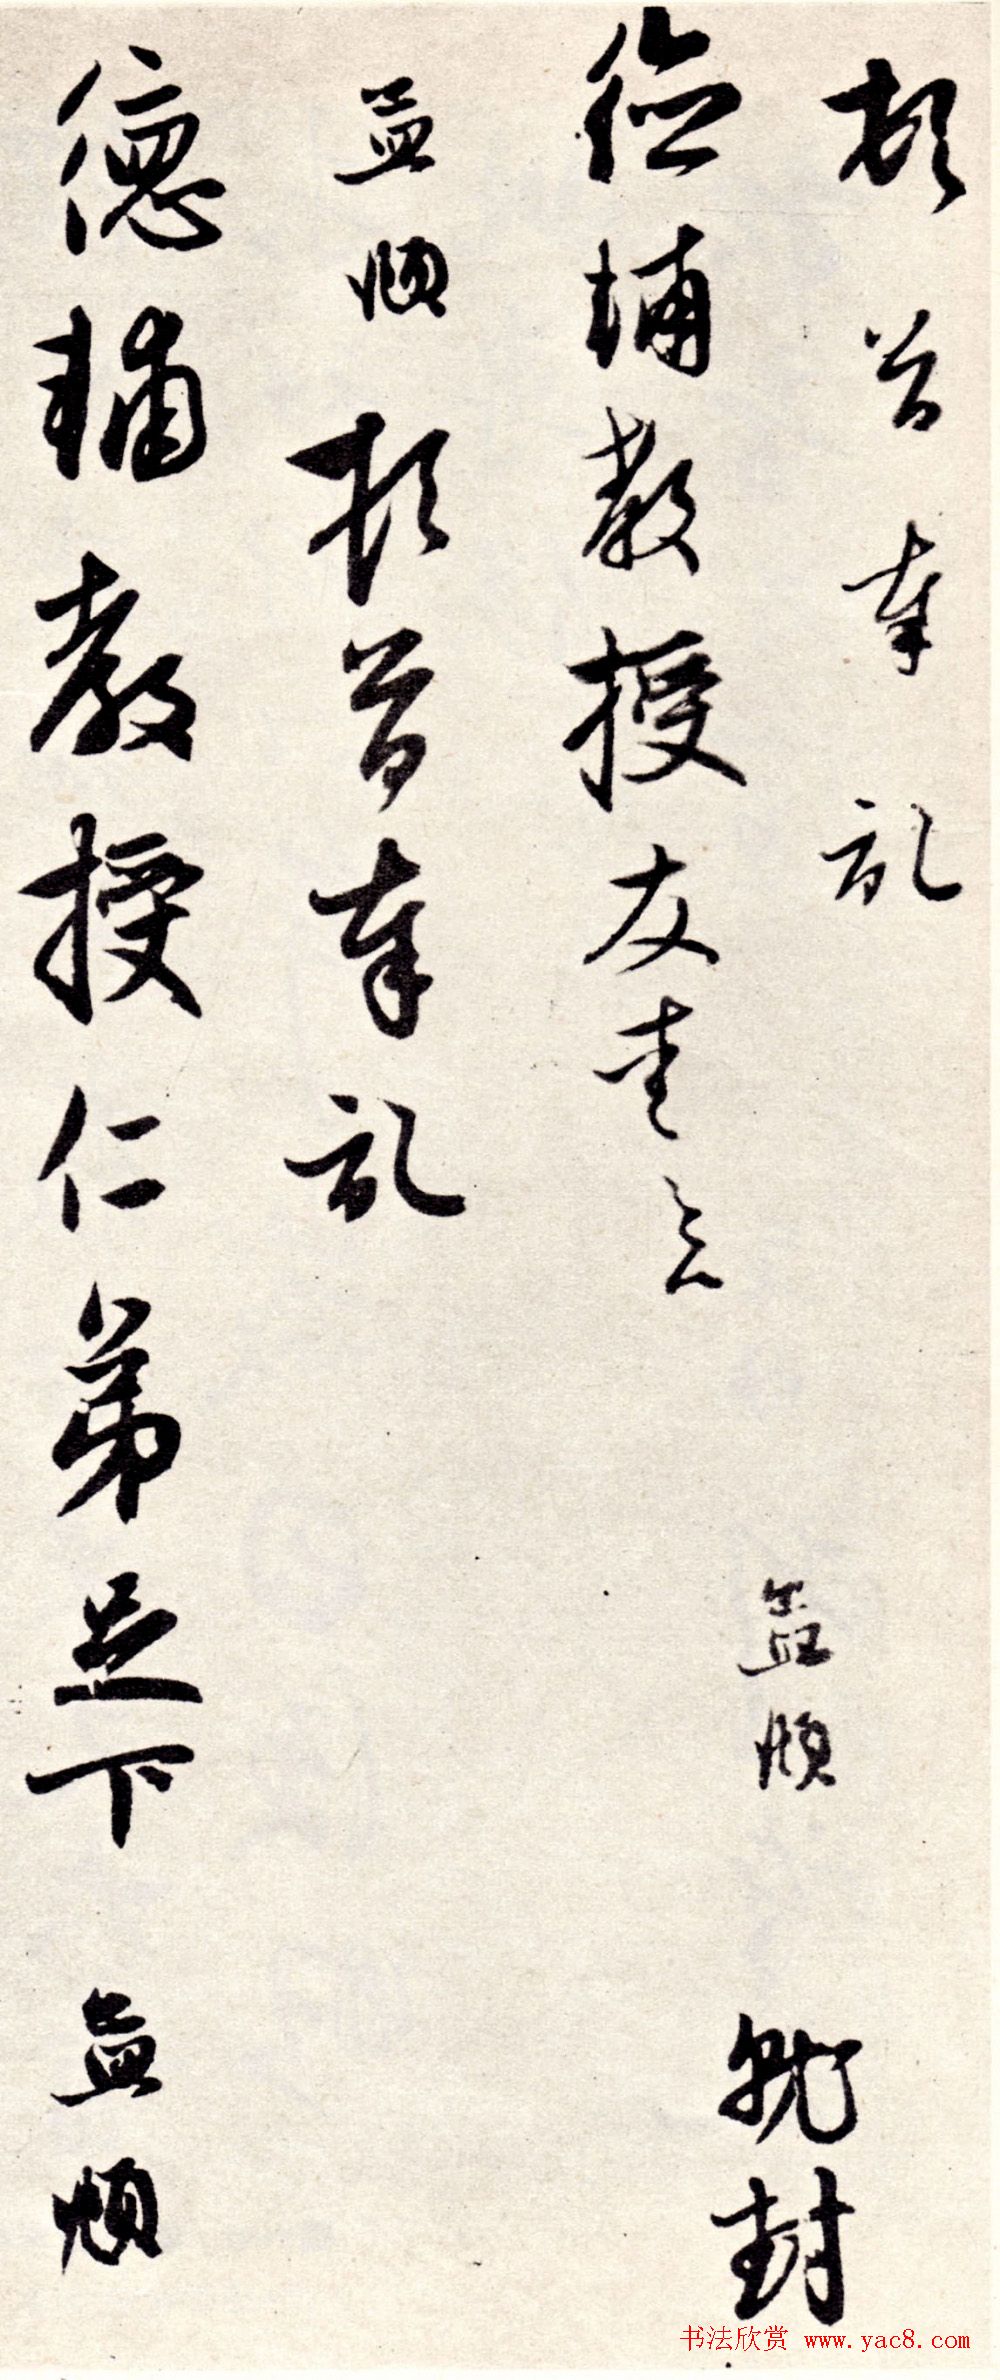 頓首奉記
孟頫 就封
德輔教授友
孟頫頓首奉記
德輔教授仁弟足下 孟頫
书法欣赏 www.yac8.com